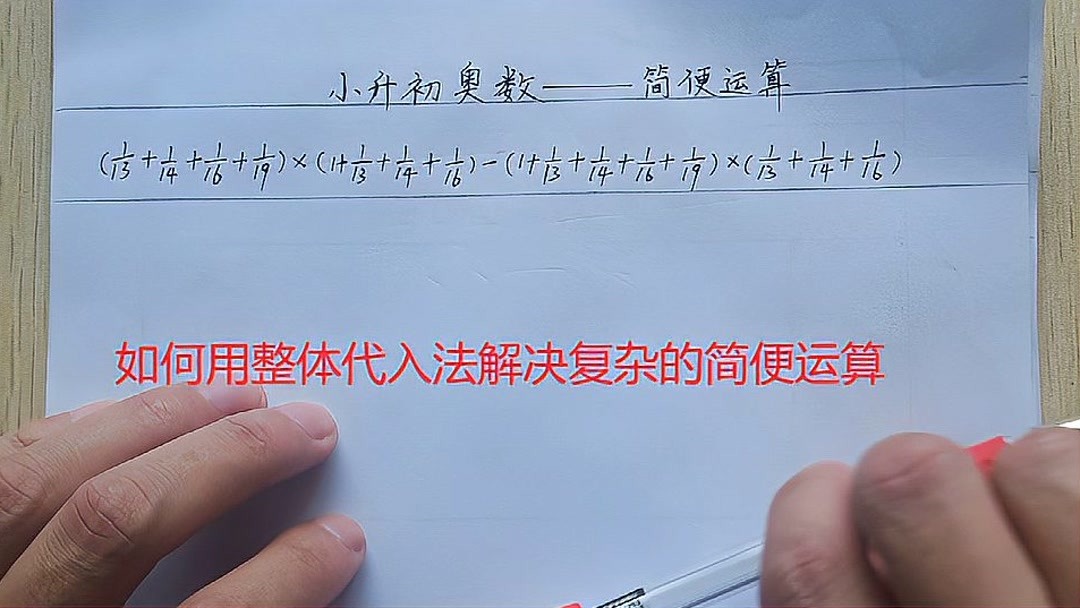 小升初奥数——简便运算
(1/13+1/14+1/16+1/19)×(1+1/13+1/14+1/16)-(1+1/13+1/14+1/16+1/19)×(1/13+1/14+1/16)
如何用整体代入法解决复杂的简便运算